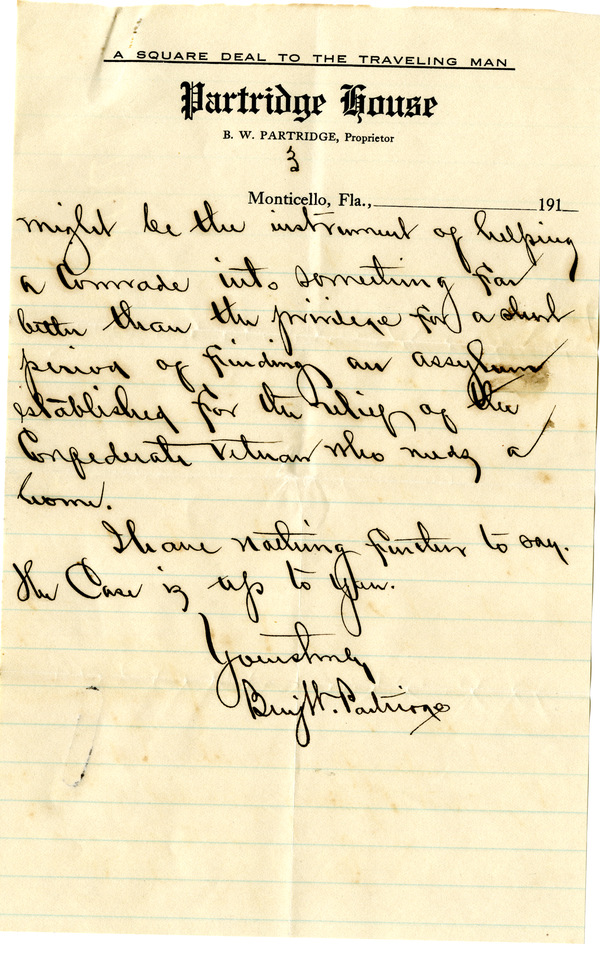 A SQUARE DEAL TO THE TRAVELING MAN
Partridge House
B. W. PARTRIDGE, Proprietor
3
Monticello, Fla., 191
might be the instrument of helping
a Comrade into something far
better than the privilege for a short
period of finding an assylum
established for the relief of the
Confederate Veteran who needs a
home.
I have nothing further to say.
The Case is up to you.
Yours truly
Benj W. Partridge